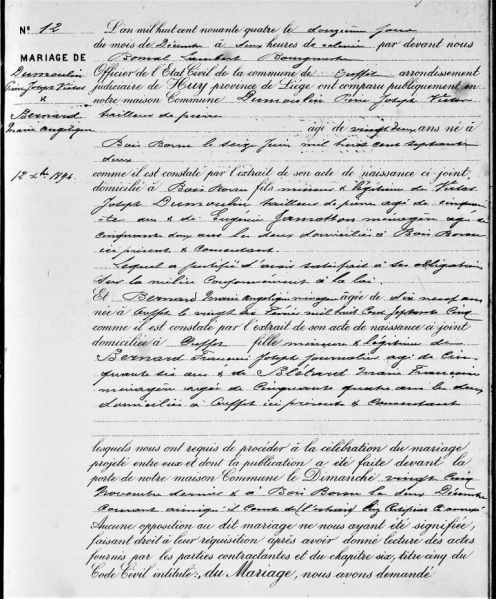 N° 12
MARIAGE DE
Dumoulin
Pierre Joseph Victor
&
Bernard
Marie Angélique
12 Xbre 1894.
L'an mil huit cent nonante quatre le douzième jour
du mois de Décembre à deux heures de relevée par devant nous
Bonmal Lambert Bourgmestre
Officier de l'Etat Civil de la commune de Ouffet arrondissement
judiciaire de Huy province de Liège ont comparu publiquement en
notre maison Commune Dumoulin Pierre Joseph Victor
tailleur de pierre
agé de vingt deux ans né à
Bois Borsu le seize Juin mil huit cent septante
deux
comme il est constaté par l'extrait de son acte de naissance ci joint,
domicilié à Bois Borsu fils mineur & légitime de Victor
Joseph Dumoulin tailleur de pierre agé de cinquante
ans & de Eugénie Jamotton ménagère agée de
cinquante deux ans les deux domiciliés à Bois Borsu
ici présents & Consentant.
Lequel a justifié d'avoir satisfait à ses obligations
sur la milice Conformément à la loi.
Et Bernard Marie Angélique ménagère agée de dix neuf ans
née à Ouffet le vingt six mil huit Cent Septante Cinq
comme il est constaté par l'extrait de son acte de naissance ci joint
domiciliée à Ouffet fille mineure & légitime de
Bernard François Joseph Journalier agé de Cinquante
six ans & de Blétard Marie Françoise
ménagère agée de Cinquante quatre ans les deux
domiciliés à Ouffet ici présents & Consentant
lesquels nous ont requis de procéder à la célébration du mariage
projeté entre eux et dont la publication a été faite devant la
porte de notre maison Commune le Dimanche vingt Cinq
Novembre dernier & à Bois Borsu le deux Décembre
Courant ainsi qu'il Conste de l'extrait Certificat Ci annexé
Aucune opposition au dit mariage ne nous ayant été signifiée,
faisant droit à leur réquisition après avoir donné lecture des actes
fournis par les parties contractantes et du chapitre six, titre cinq du
Code Civil intitulé: du Mariage, nous avons demandé